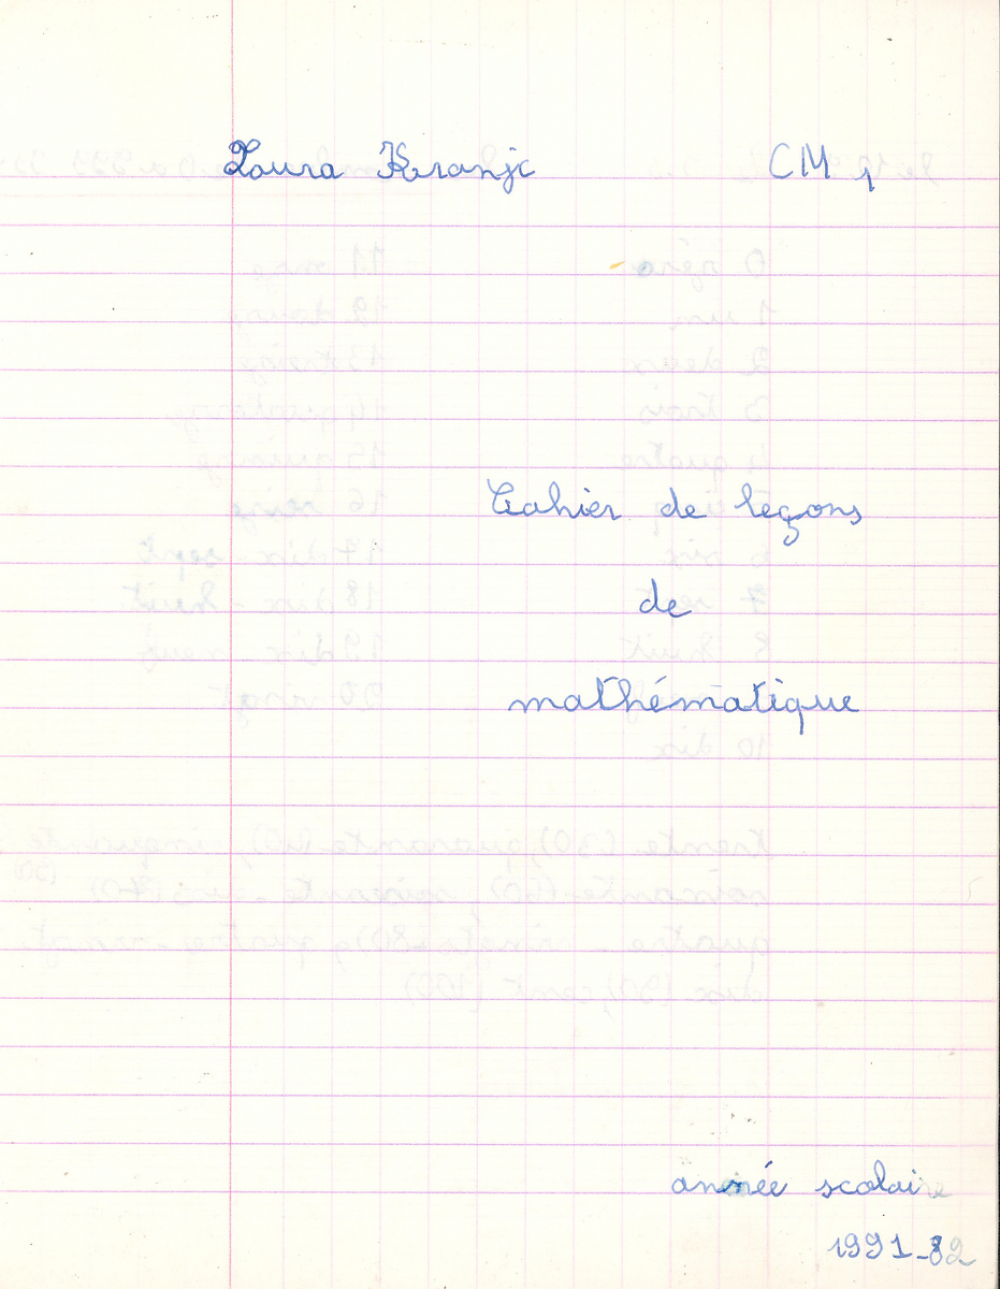 Laura Kranjc CM1
Cahier de leçons
de
mathématique
année scolaire
1991-92